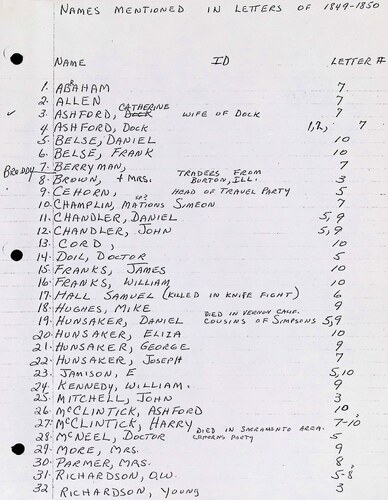 NAMES MENTIONED IN LETTERS OF 1849-1850
NAME ID LETTER #
1. ABRAHAM 7
2. ALLEN 7
✓ 3. ASHFORD, CATHERINE WIFE OF DOCK 7
4. ASHFORD, DOCK 1, 2, 7
5. BELSE, DANIEL 10
6. BELSE, FRANK 10
7. BERRYMAN, 7
8. BROWN, + MRS. TRADERS FROM BURTON, ILL. 3
9. CEHORN, HEAD OF TRAVEL PARTY 5
10. CHAMPLIN, SIMEON 7
11. CHANDLER, DANIEL 5, 9
12. CHANDLER, JOHN 5, 9
13. CORD, 10
14. DOIL, DOCTOR 5
15. FRANKS, JAMES 10
16. FRANKS, WILLIAM 10
17. HALL SAMUEL (KILLED IN KNIFE FIGHT) 6
18. HUGHES, MIKE 9
19. HUNSAKER, DANIEL DIED IN VERNON CALIF. COUSINS OF SIMPSONS 5, 9
20. HUNSAKER, ELIZA 10
21. HUNSAKER, GEORGE 9
22. HUNSAKER, JOSEPH 7
23. JAMISON, E 5, 10
24. KENNEDY, WILLIAM. 9
25. MITCHELL, JOHN 3
26. MCCLINTICK, ASHFORD 10
27. MCCLINTICK, HARRY 7-10
28. MCNEEL, DOCTOR DIED IN SACRAMENTO AREA. PARTY 5
29. MORE, MRS. 9
30. PARMER, MRS. 8
31. RICHARDSON, O.W. 5-8
32 RICHARDSON, YOUNG 3